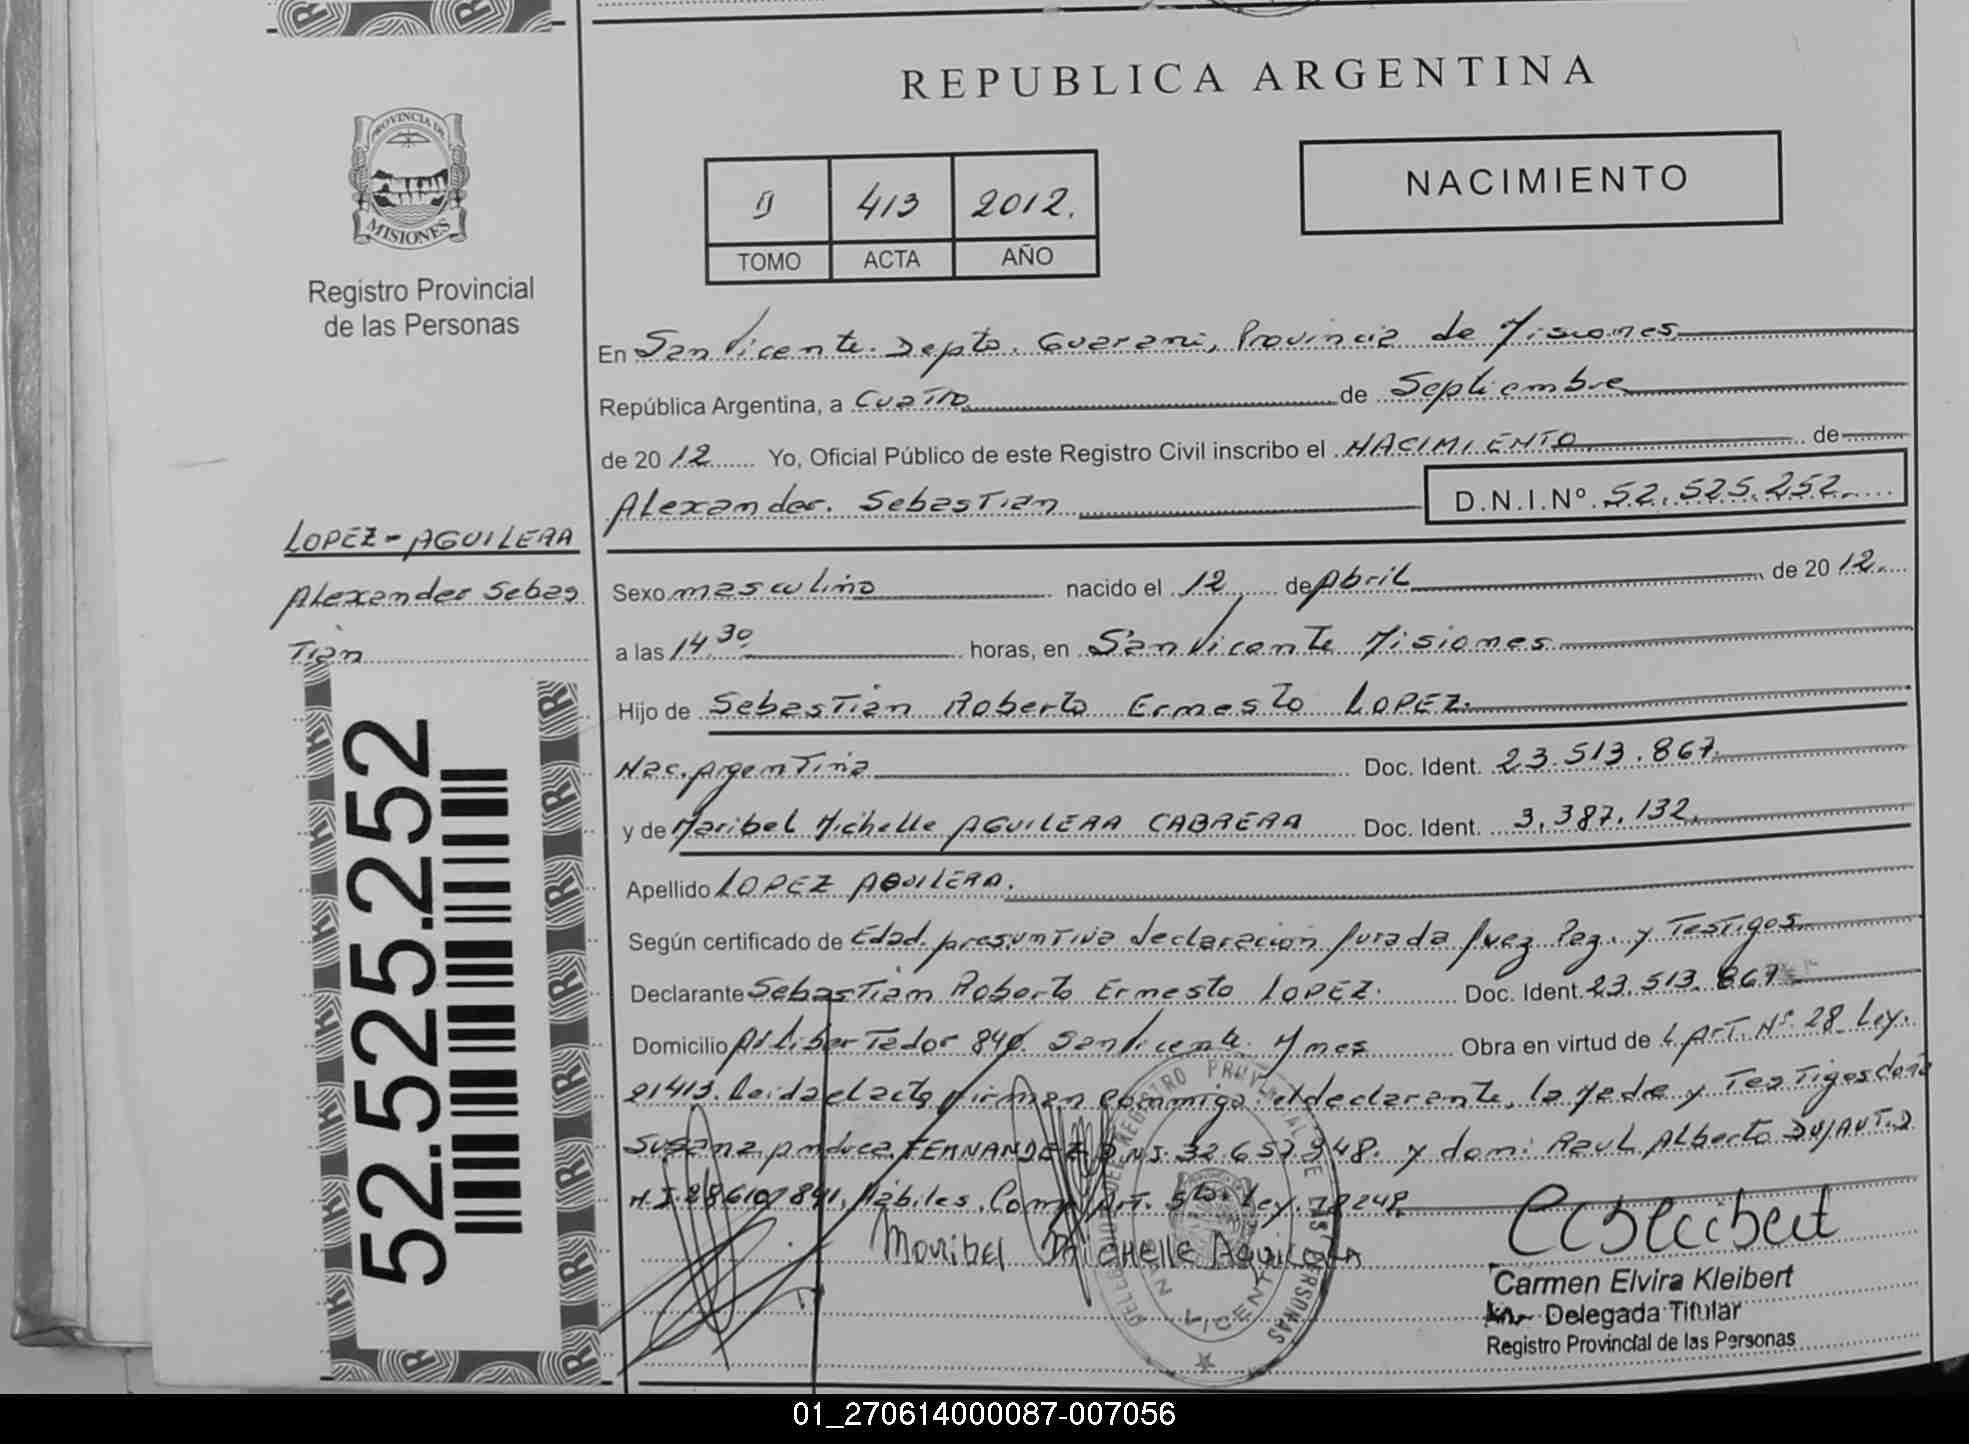 REPUBLICA ARGENTINA
PROVINCIA DE
MISIONES
Registro Provincial
de las Personas
413 2012.
TOMO ACTA AÑO
NACIMIENTO
En San Vicente. Depto. Guarani, Provincia de Misiones
República Argentina, a Cuatro de Septiembre
de 2012 Yo, Oficial Público de este Registro Civil inscribo el NACIMIENTO de
Alexander. Sebastian D.N.I.Nº 52.525.252
LOPEZ-AGUILERA
Alexander Sebas
Tian
52.525.252
Sexo masculino nacido el 12 de Abril de 2012.
a las 14.30 horas, en San Vicente Misiones
Hijo de Sebastian Roberto Ernesto LOPEZ.
Nac. Argentina Doc. Ident. 23.513.867
y de Maribel Michelle AGUILERA CABRERA Doc. Ident. 3.387.132
Apellido LOPEZ AGUILERA.
Según certificado de Edad presuntiva declaracion Jurada Juez Paz. y Testigos
Declarante Sebastian Roberto Ernesto LOPEZ. Doc. Ident. 23.513.867
Domicilio Av Libertador 840 San Vicente. Mnes Obra en virtud de L Art. Nº 28 Ley.
21413. Leida el acta firman conmigo el declarante, la Madre y Testigos doña
Susana FERNANDEZ D.N.I. 32.657.948. y don: Raul Alberto D
N.I. Habiles Conf. Art. 5to. Ley. 18248.
Maribel Michelle Aguilera
Carmen Elvira Kleibert
Delegada Titular
Registro Provincial de las Personas
01_270614000087-007056